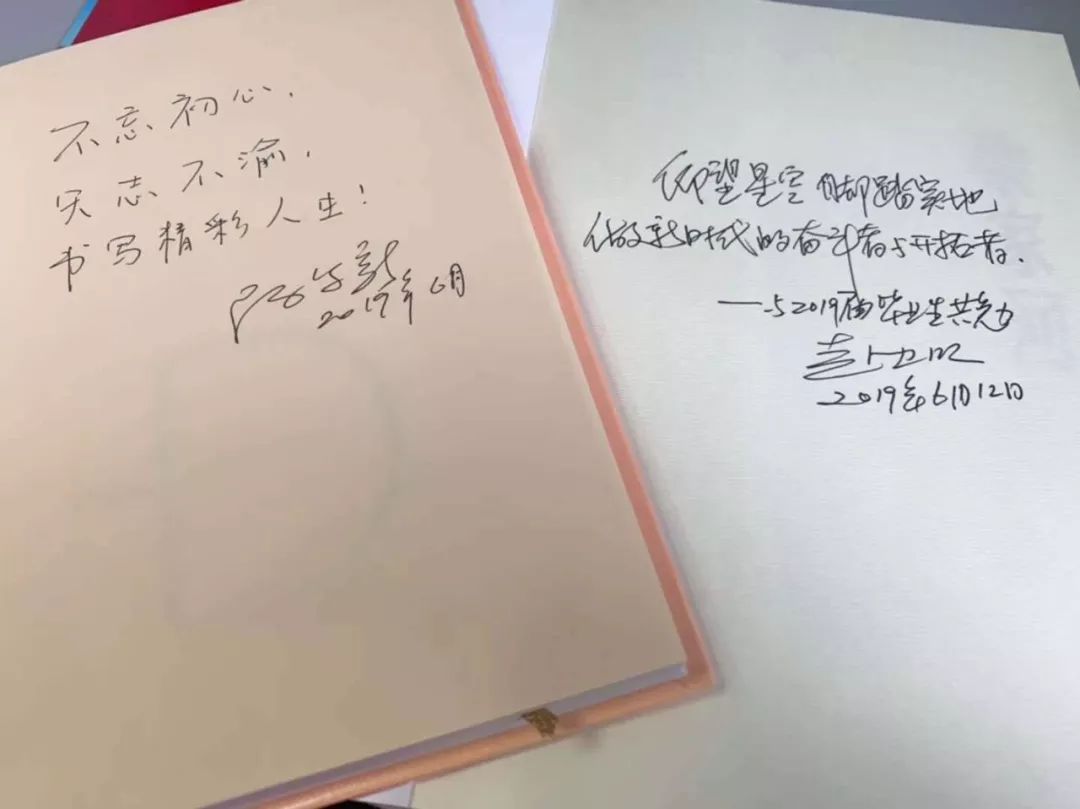 不忘初心，
矢志不渝，
书写精彩人生！
2019年6月
仰望星空 脚踏实地
做新时代的奋斗者与开拓者.
——与2019届毕业生共勉
2019年6月12日